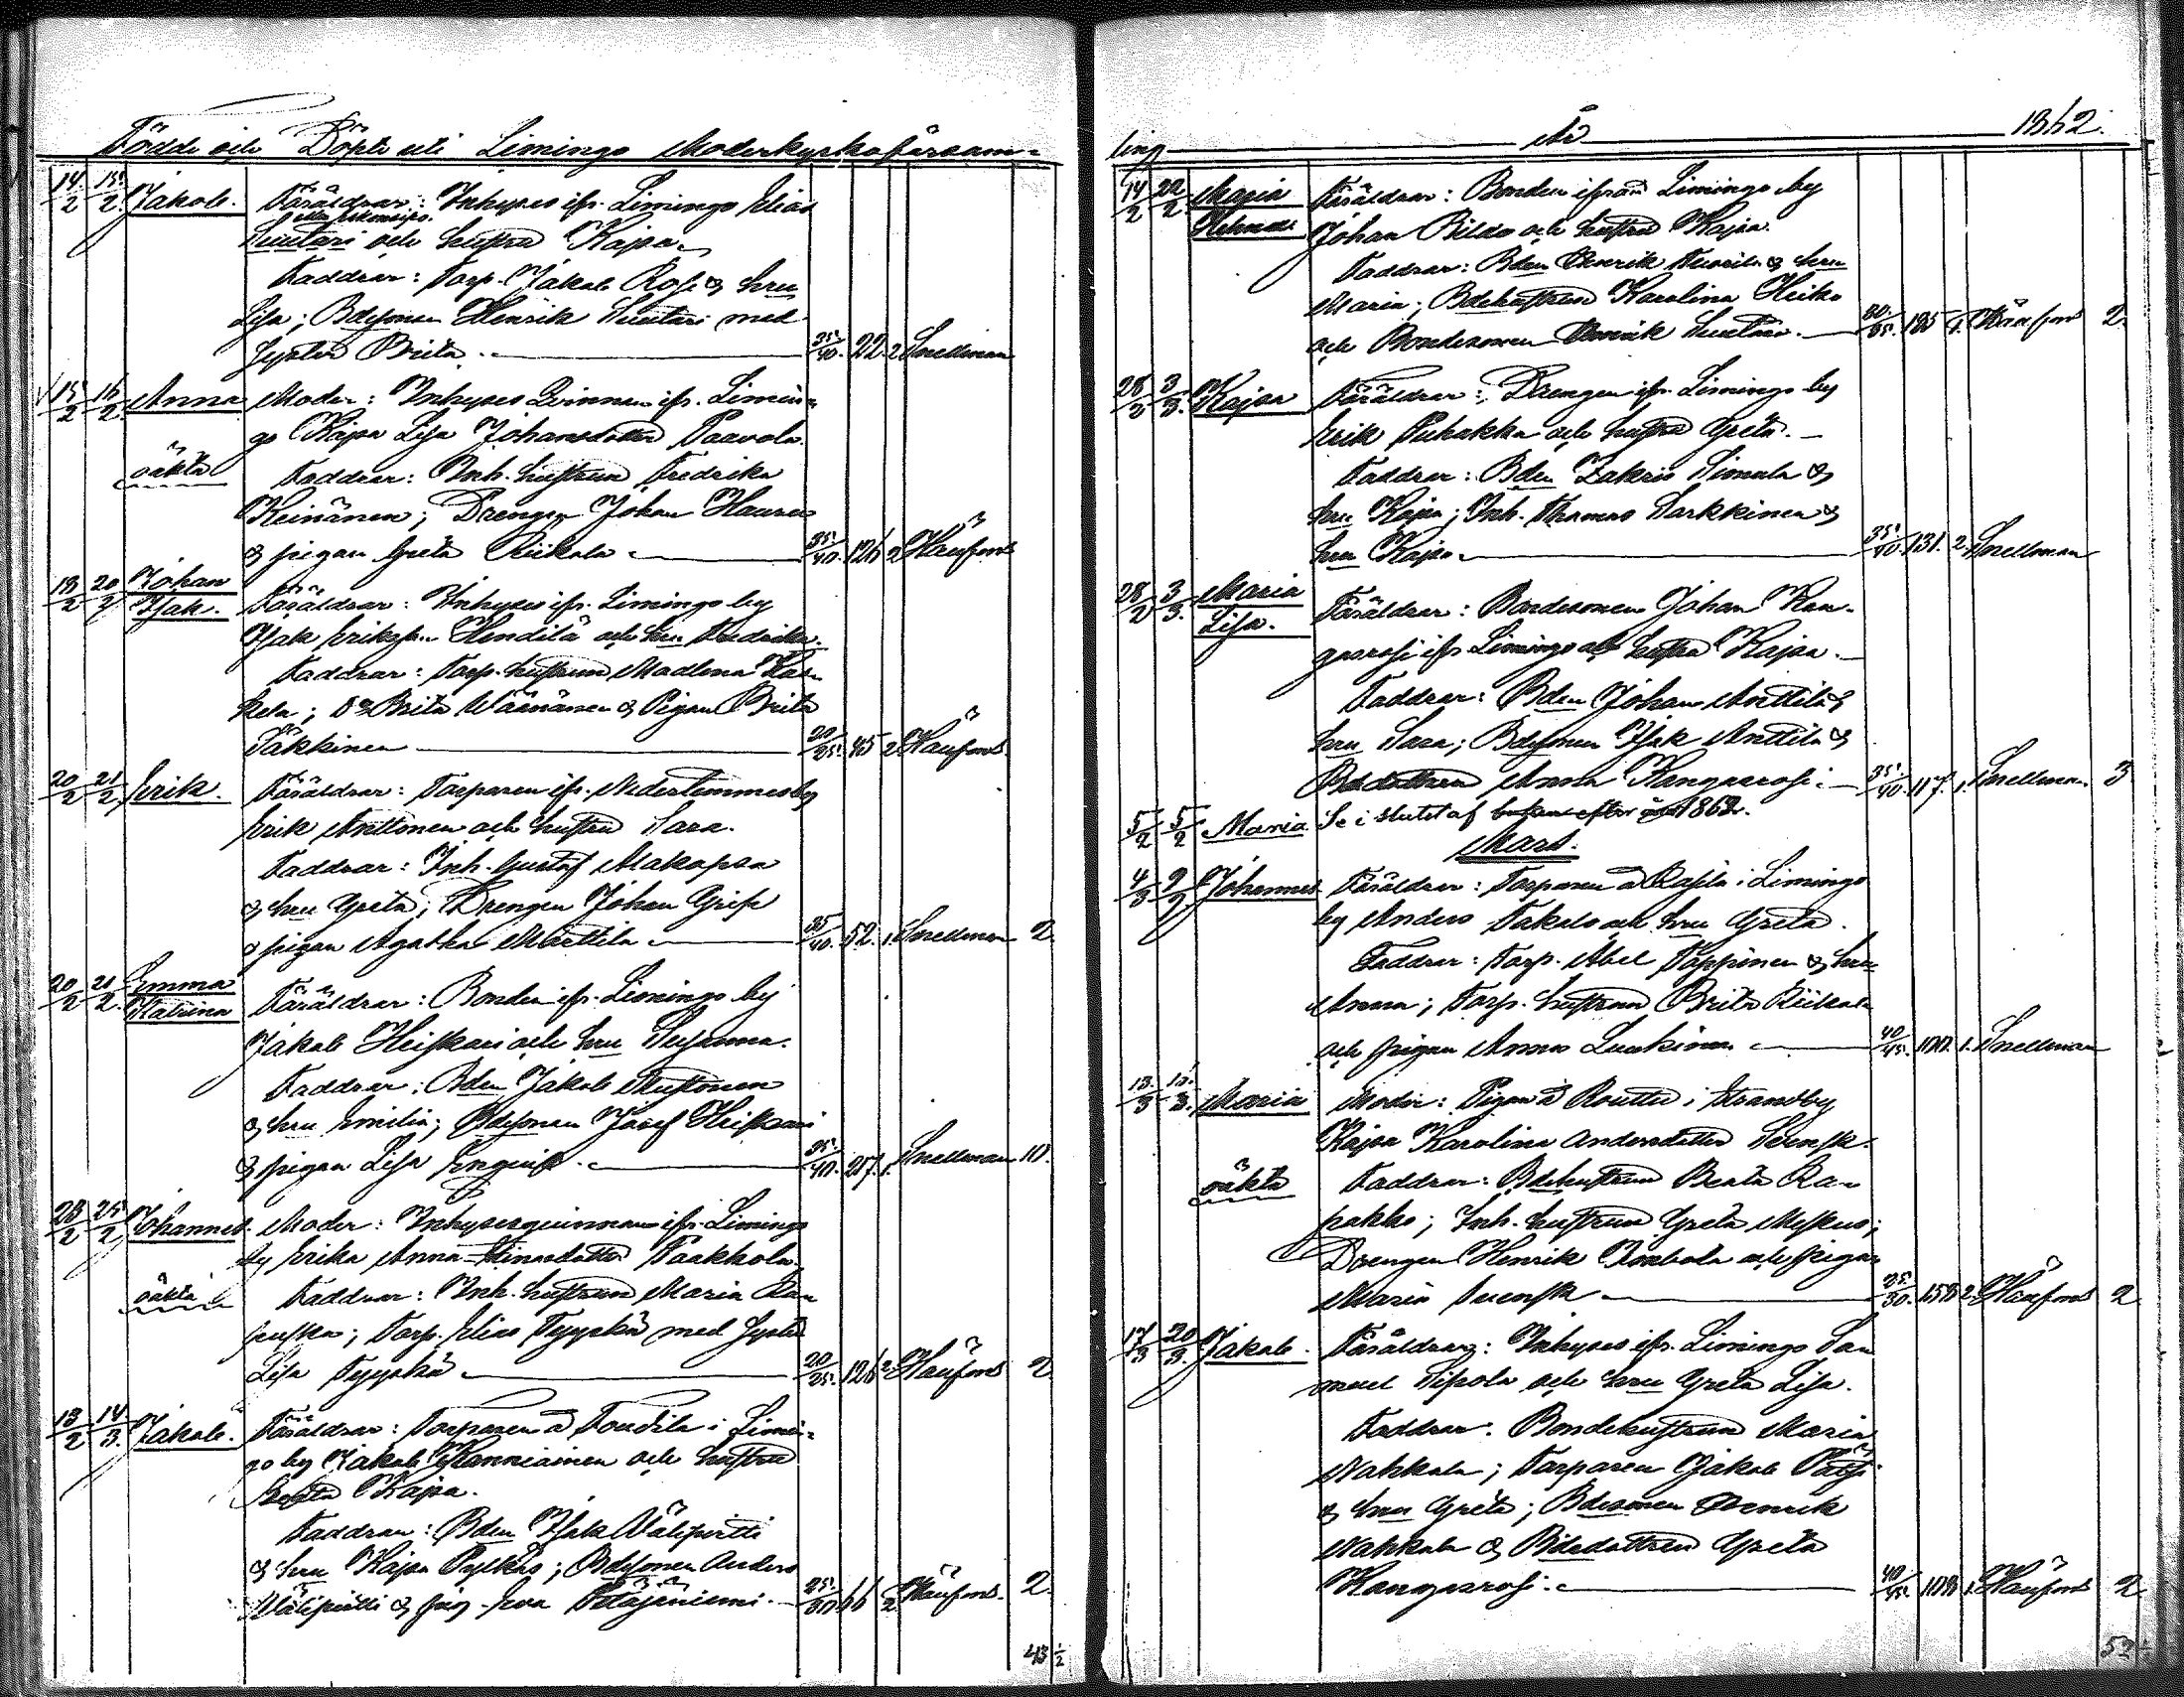 Födde och Döpte uti Limingo Moderkyrkoförsam-
14/2 15/2 Jakob. Föräldrar: Inhyses ifr. Limingo Elias
Huutari och hustru Kajsa.
Faddrar: Torp. Jakob Ross & hru
Lisa; Bdesonen Henrik Huutari med
Syster Brita. 35/40. 22. 2. Snellman
15/2 16/2 Anna Moder: Inhyses Qvinnan ifr. Limin-
go Kajsa Lisa Johansdotter Paavola.
oäkta Faddrar: Inh. hustrun Fredrika
Keinänen; Drengen Johan Hauru
& pigan Greta Riikola 35/40. 126 2 Hänfors
18/2 20/2 Johan
Isak. Föräldrar: Inhyses ifr. Limingo by
Isak Eriksson Hendilä och hru Fredrika.
Faddrar: Torp. hustrun Madlena Kos-
kela; Do Brita Wäänänen & Pigan Brita
Jäkkinen 20/25. 45 2. Hänfors
20/2 21/2 Erik. Föräldrar: Torparen ifr. Nedertemmes by
Erik Anttonen och hustru Sara.
Faddrar: Inh. Gustaf Makapaa
& hru Greta; Drengen Johan Grip
& pigan Agatha Marttila 35/40. 52. 1. Snellman 2.
20/2 21/2 Emma
Katrina Föräldrar: Bonden ifr. Limingo by
Jakob Heiskari och hru Susanna.
Faddrar: Bden Jakob Mustonen
& hru Emilia; Bdesonen Josef Heiskari
& pigan Lisa Enqvist. 35/40. 217. 1. Snellman 10.
23/2 25/2 Johannes. Moder: Inhysesqvinnan ifr. Limingo
by Erika Anna Stinasdotter Paakkola.
oäkta Faddrar: Inh. hustrun Maria Rau
; Torp. Elias Tyyskä med Syster
Lisa Tyyskä 20/25. 126 2 Hänfors 2
13/2 14/3. Jakob. Föräldrar: Torparen å Toudila i Limin-
go by Jakob Kanniainen och hustru
Kajsa.
Faddrar: Bden Isak Wälipirtti
& hru Kajsa Pylkäs; Bdesonen Anders
Wälipirtti & pig. Eva Petäjäniemi. 25/30. 66 2 Hänfors. 2.
43 1/2
ling År 1862.
14/2 22/2 Maria
Helena Föräldrar: Bonden ifrån Limingo by
Johan Pildo och hustru Kajsa.
Faddrar: Bden Henrik & hru
Maria; Bdehustrun Karolina Heiko
och Bondesonen Henrik Huutari. 30/35. 185 1. Hänfors 2.
28/2 3/3. Kajsa Föräldrar: Drengen ifr. Limingo by
Erik Puhakka och hustru Greta.
Faddrar: Bden Zakris Simula &
hru Kajsa; Inh. Thomas Sarkkinen &
hru Kajsa. 35/40. 131. 2. Snellman
28/2 3/3. Maria
Lisa. Föräldrar: Bondesonen Johan Kan-
gasrosi ifr Limingo och hustru Kajsa.
Faddrar: Bden Johan Anttila &
hru Sara; Bdesonen Isak Anttila &
Bdedottren Anna Kangasrosi. 35/40. 117. 1. Snellman. 3
5/2 5/2 Maria. Se i slutet af boken efter år 1862.
Mars.
4/3 9/3 Johannes Föräldrar: Torparen å Rapila i Limingo
by Anders Takalo och hru Greta.
Faddrar: Torp. Abel Pappinen & hru
Anna; Torp. hustrun Brita Riikola
och pigan Anna Luukinen 40/45. 100. 1. Snellman
13/3 15/3. Maria Moder: Pigan å Routtu i Strandby
Kajsa Karolina Andersdotter Svensk.
oäkta Faddrar: Bdehustrun Beata Ra-
pakko; Inh. hustrun Greta Meskus;
Drengen Henrik och pigan
Maria Svensk 25/30. 158 2. Hänfors 2
17/3 20/3. Jakob. Föräldrar: Inhyses ifr. Limingo Sa-
muel Sipola och hru Greta Lisa.
Faddrar. Bondehustrun Maria
Nahkala; Torparen Jakob Patsi
& hru Greta; Bdesonen Henrik
Nahkala & Bdedottren Greta
Kangasrosi. 40/45. 108. 1. Hänfors 2
52 1/2